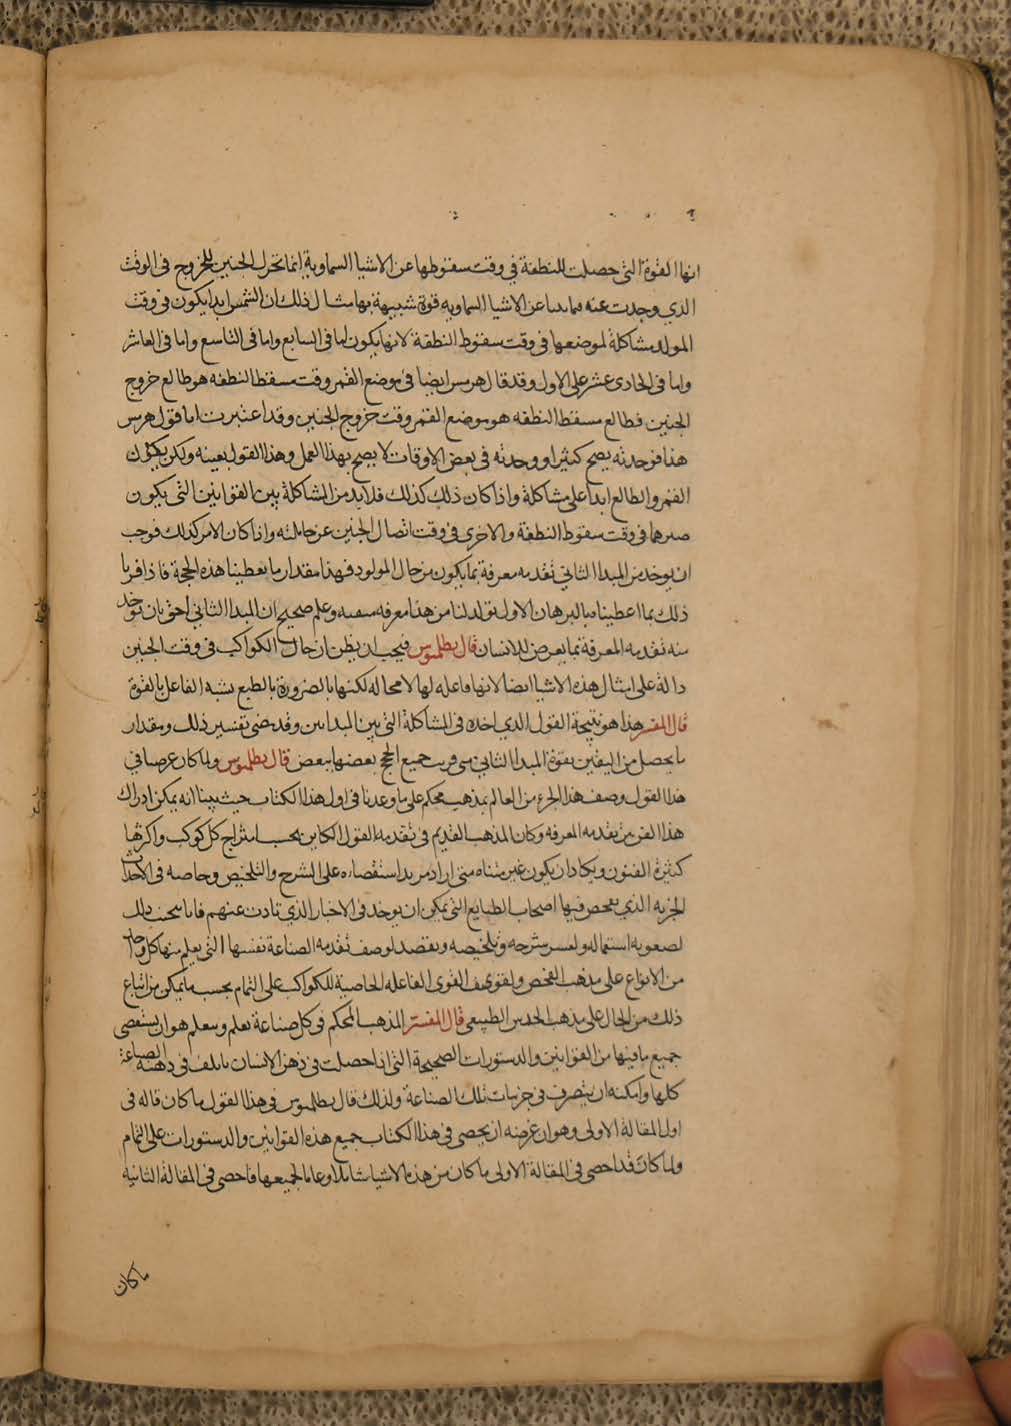 انها القوة التي حصلت للنطفة في وقت سقوطها عن الاشيا السماوية انما تحرك الجنين للخروج في الوقت
الذي وجدت عنه عن الاشيا السماويه قوة شبيهة بها مثال ذلك ان الشمس ابدا يكون في وقت
المولد مشاكلة لموضعها في وقت سقوط النطفة لانها يكون اما في السابع واما في التاسع واما في العاشر
واما في الحادي عشر على الاول وقد قال هرمس ايضا في موضع القمر وقت مسقط النطفه هو طالع خروج
الجنين فطالع مسقط النطفه هو موضع القمر وقت خروج الجنين وقد اعتبرت اما قول هرمس
هذا فوجدته يصح كثيرا ووجدته في بعض الاوقات لا يصح بهذا العمل وهذا القول بعينه ولكن يكون
القمر والطالع ابدا على مشاكلة واذا كان ذلك كذلك فلا بد من المشاكلة بين القوانين التي يكون
في وقت سقوط النطفة والاخرى في وقت اتصال الجنين عن واذا كان الامر كذلك فوجب
ان يوخذ من المبدا الثاني تقدمه معرفة بما يكون من حال المولود فهذا مقدار ما يعطينا هذه الحجة فاذا
ذلك بما اعطيناه بالبرهان الاول تولد لنا من هذا معرفه وعلم صحيح ان المبدا الثاني احق بان توخذ
منه تقدمه المعرفة بما يعرض للانسان قال بطلميوس فيجب ان يظن ان حال الكواكب في وقت الجنين
دالة على امثال هذه الاشيا ايضا لانها فاعله لها لا محاله لكنها بالضرورة بالطبع الفاعل بالقوة
قال المفسر هذا هو نتيجة القول الذي اخذه في المشاكلة التي بين المبداين وقد مضى تفسير ذلك ومقدار
ما يحصل من اليقين بقوة المبدا الثاني متى قرنت جميع الحجج بعضها ببعض قال بطلميوس ولما كان عرضنا في
هذا القول وصف هذا الجزء من العالم بمذهب محكم على ما وعدنا في اول هذا الكتاب حيث بينا انه يمكن ادراك
هذا الفن من تقدمه المعرفه وكان المذهب القديم في تقدمه القول الكاين بحسب امتزاج كل كوكب واكثرها
كثيرة الفنون ويكاد ان يكون غير متناه متى اراد مريد استقصاءه على الشرح والتلخيص وخاصه في الاحداث
الجزيه الذي يفحص فيها اصحاب الطبايع التي يمكن ان يوخذ في الاخبار الذي تادت عنهم فانا ذلك
لصعوبه استعماله ولعسر شرحه وتلخيصه ونقصد لوصف تقدمه الصناعة نفسها التي يعلم منها كل واحد
من الانواع على مذهب الفحص القوى الفاعله الخاصية للكواكب على التمام بحسب ما يمكن من اتباع
ذلك من الحال على مذهب الحدس الطبيعي قال المفسر المذهب المحكم في كل صناعة تعلم وتتعلم هو ان يستقصى
جميع ما فيها من القوانين والدستورات الصحيحة التي اذا حصلت في ذهن الانسان في ذهنه الصناعة
كلها وامكنه ان يتصرف في جزيات تلك الصناعة ولذلك قال بطلميوس في هذا القول ما كان قاله في
اول المقالة الاولى وهو ان غرضه ان يحصى في هذا الكتاب جميع هذه القوانين والدستورات على التمام
ولما كان قد احصى في المقالة الاولى ما كان من هذه الاشيا شاملا وعاما لجميعها فاحصى في المقالة الثانية
ما كان